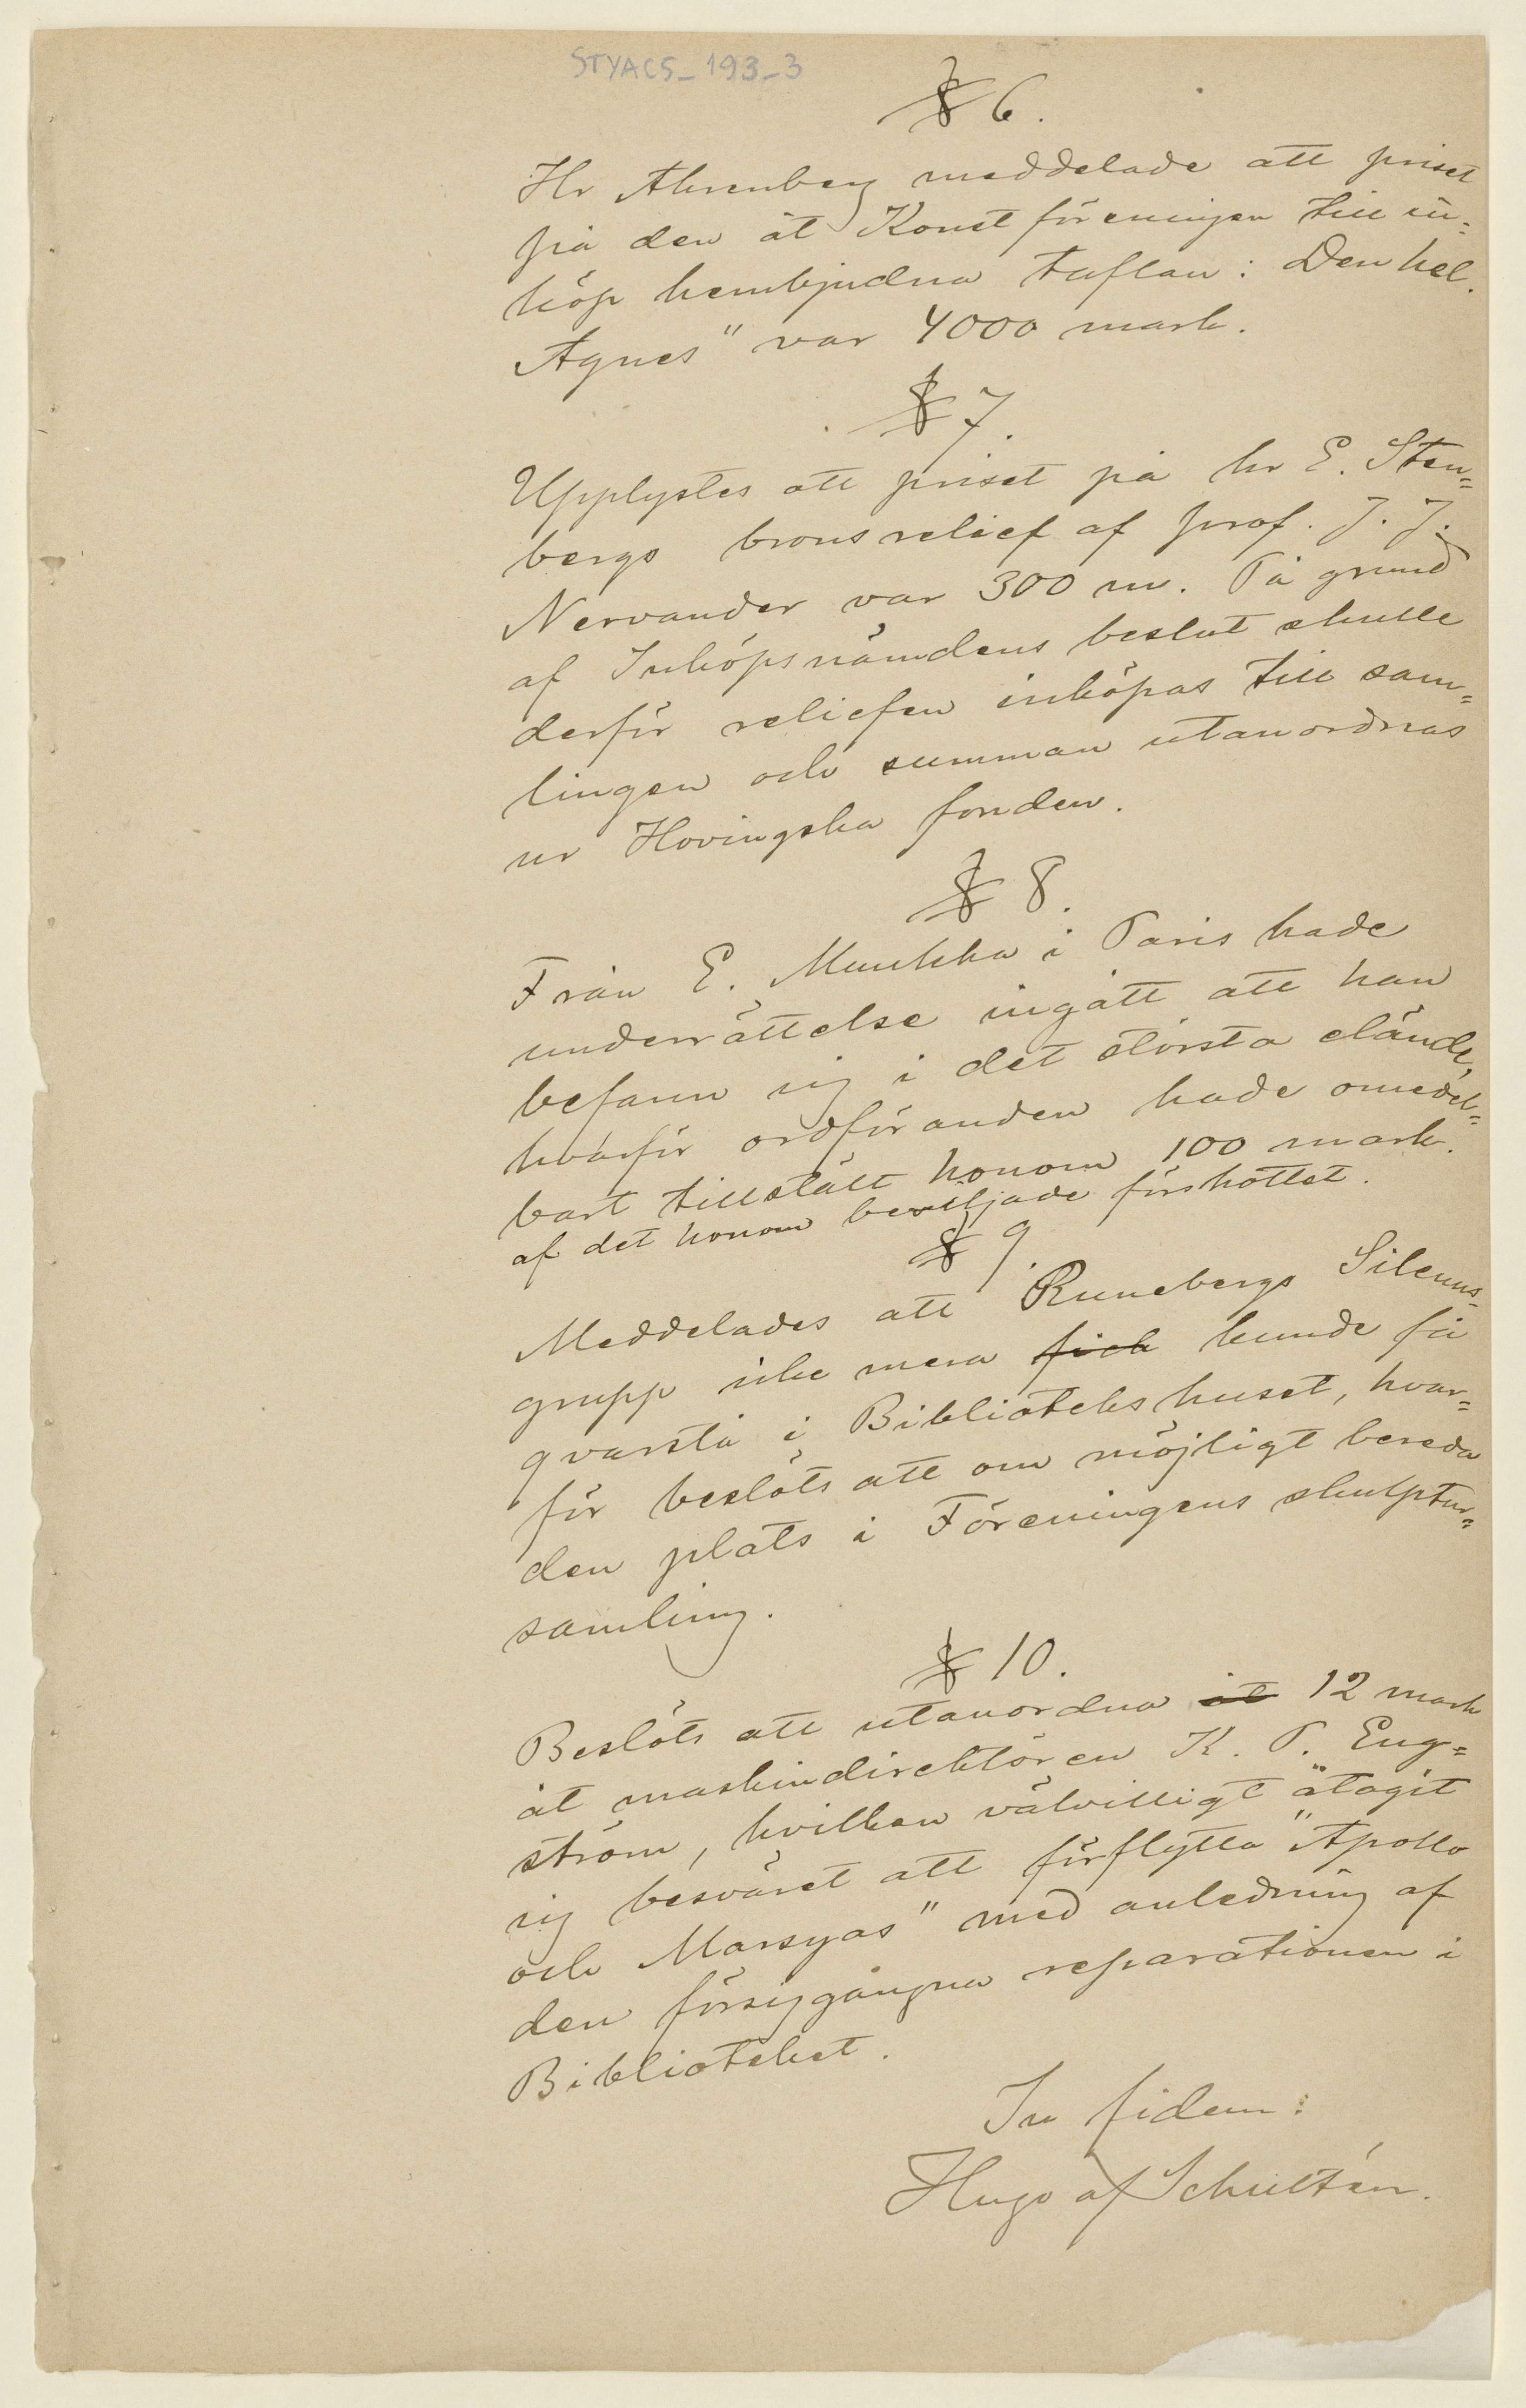 STYACS_193_3
§ 6.
Hr Ahrenberg meddelade att priset
på den åt Konstföreningen till in=
köp hembjudna taflan: Den hel.
Agnes" var 4000 mark.
§ 7.
Upplystes att priset på hr E. Sten=
bergs bronsrelief af prof. J. J.
Nervander var 300 m. På grund
af Inköpsnämdens beslut skulle
derför reliefen inköpas till sam=
lingen och summan utanordnas
ur Hovingska fonden.
§ 8.
Från E. Muukka i Paris hade
underrättelse ingått att han
befann sig i det största elände,
hvarför ordföranden hade omedel=
bart tillstält honom 100 mark.
af det honom beviljade förskottet.
§ 9.
Meddelades att Runebergs Silenus=
grupp icke mera fick kunde få
qvarstå i Bibliotekshuset, hvar=
för beslöts att om möjligt bereda
den plats i Föreningens skulptur=
samling.
§ 10.
Beslöts att utanordna åt 12 mark
åt maskindirektören K. P. Eng=
ström, hvilken välvilligt åtagit
sig besväret att förflytta "Apollo
och Marsyas" med anledning af
den försiggångna reparationen i
Biblioteket.
In fidem:
Hugo af Schultén.